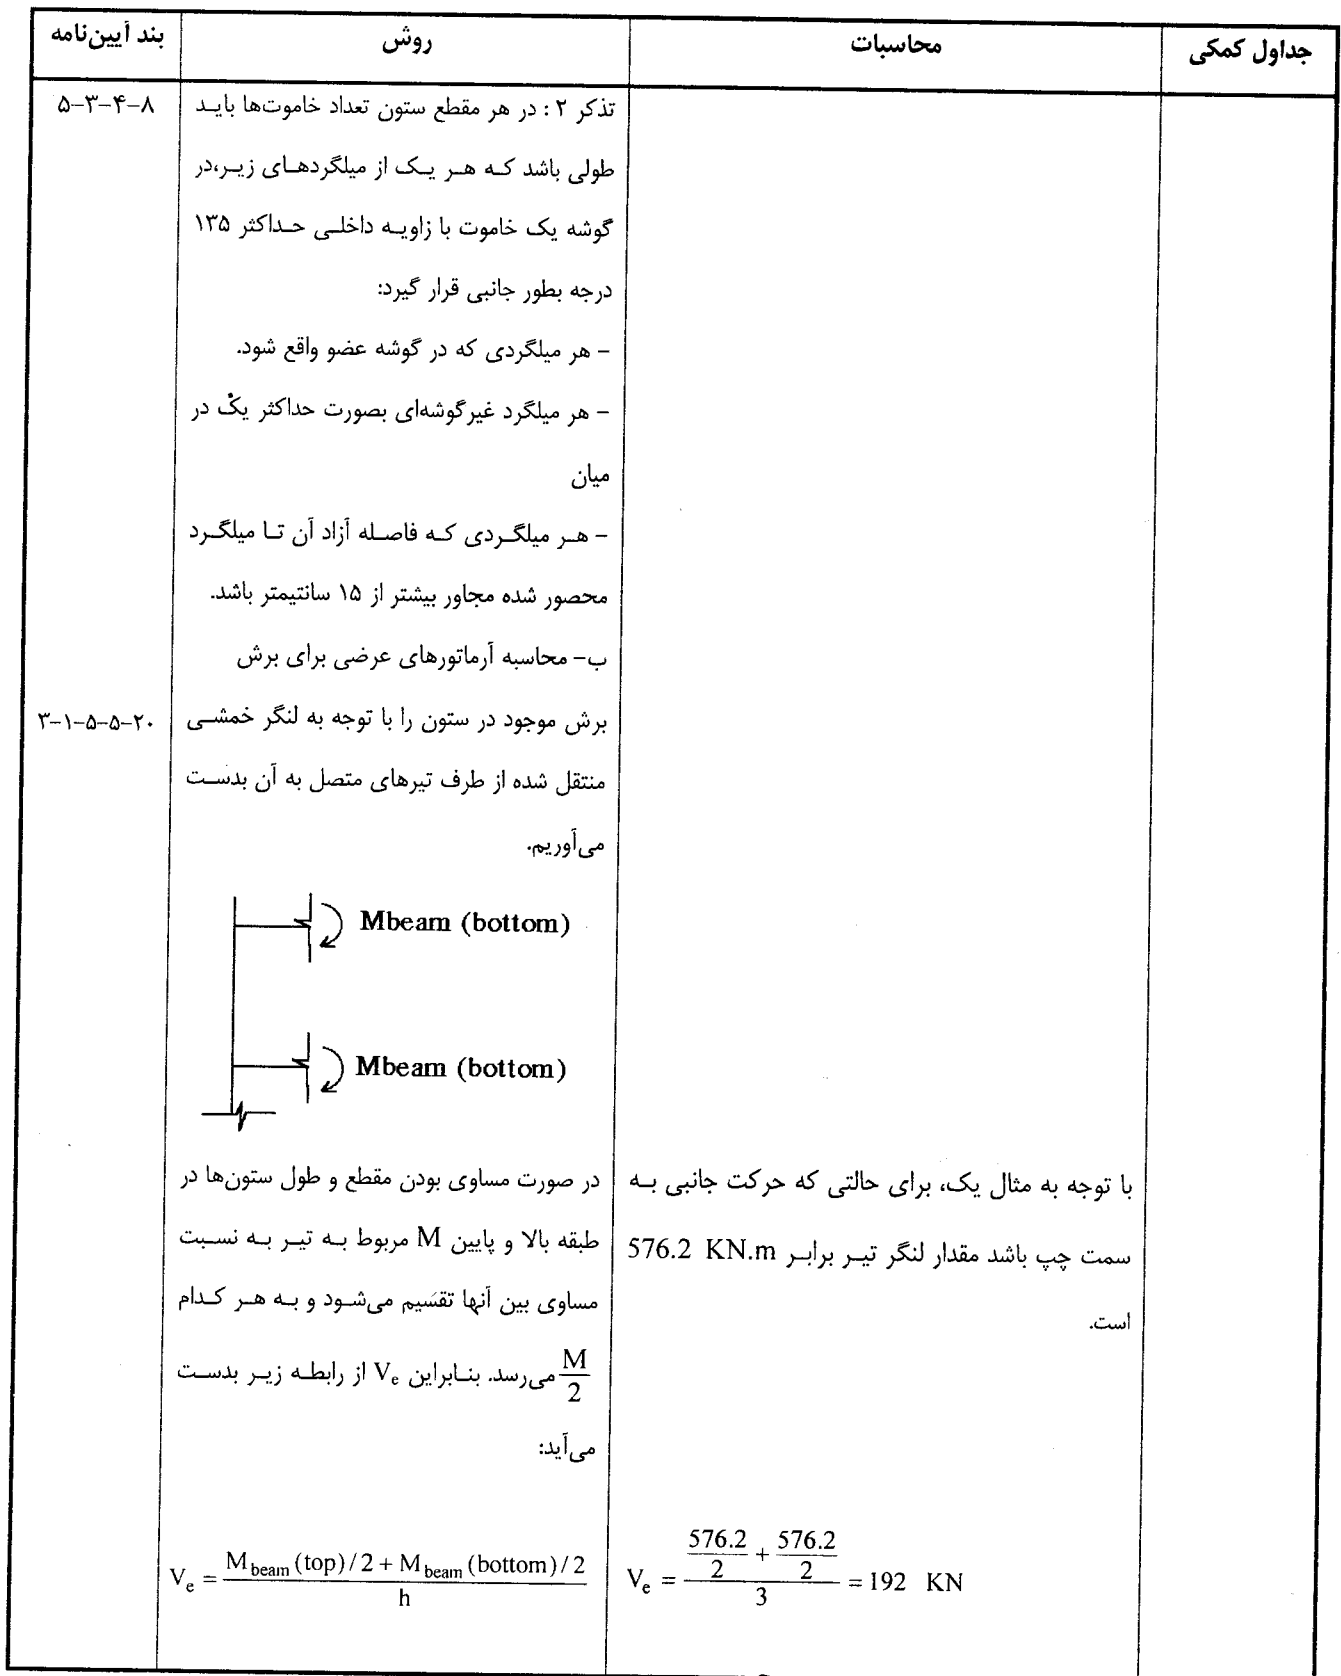 بند آیین‌نامه
روش
محاسبات
جداول کمکی
۸-۴-۳-۵
تذکر ۲ : در هر مقطع ستون تعداد خاموت‌ها باید
طولی باشد که هر یک از میلگردهای زیر،در
گوشه یک خاموت با زاویه داخلی حداکثر ۱۳۵
درجه بطور جانبی قرار گیرد:
- هر میلگردی که در گوشه عضو واقع شود.
- هر میلگرد غیرگوشه‌ای بصورت حداکثر یک در
میان
- هر میلگردی که فاصله آزاد آن تا میلگرد
محصور شده مجاور بیشتر از ۱۵ سانتیمتر باشد.
ب- محاسبه آرماتورهای عرضی برای برش
۲۰-۵-۵-۱-۳
برش موجود در ستون را با توجه به لنگر خمشی
منتقل شده از طرف تیرهای متصل به آن بدست
می‌آوریم.
Mbeam (bottom)
Mbeam (bottom)
در صورت مساوی بودن مقطع و طول ستون‌ها در
طبقه بالا و پایین M مربوط به تیر به نسبت
مساوی بین آنها تقسیم می‌شود و به هر کدام
M/2 می‌رسد. بنابراین Ve از رابطه زیر بدست
می‌آید:
Ve = (M beam (top)/2 + M beam (bottom)/2) / h
با توجه به مثال یک، برای حالتی که حرکت جانبی به
سمت چپ باشد مقدار لنگر تیر برابر 576.2 KN.m
است.
Ve = (576.2/2 + 576.2/2) / 3 = 192 KN